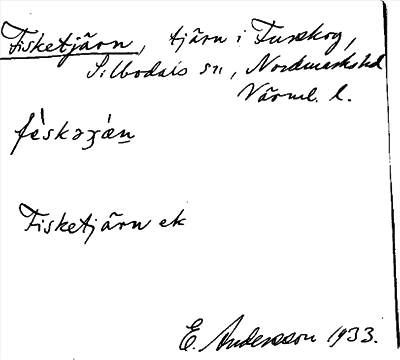 Fisketjärn, tjärn i Turskog,
Silbodals sn, Nordmarks hd
Värml. l.
fèskəʒæ̀n
Fisketjärn ek
E. Andersson 1933.